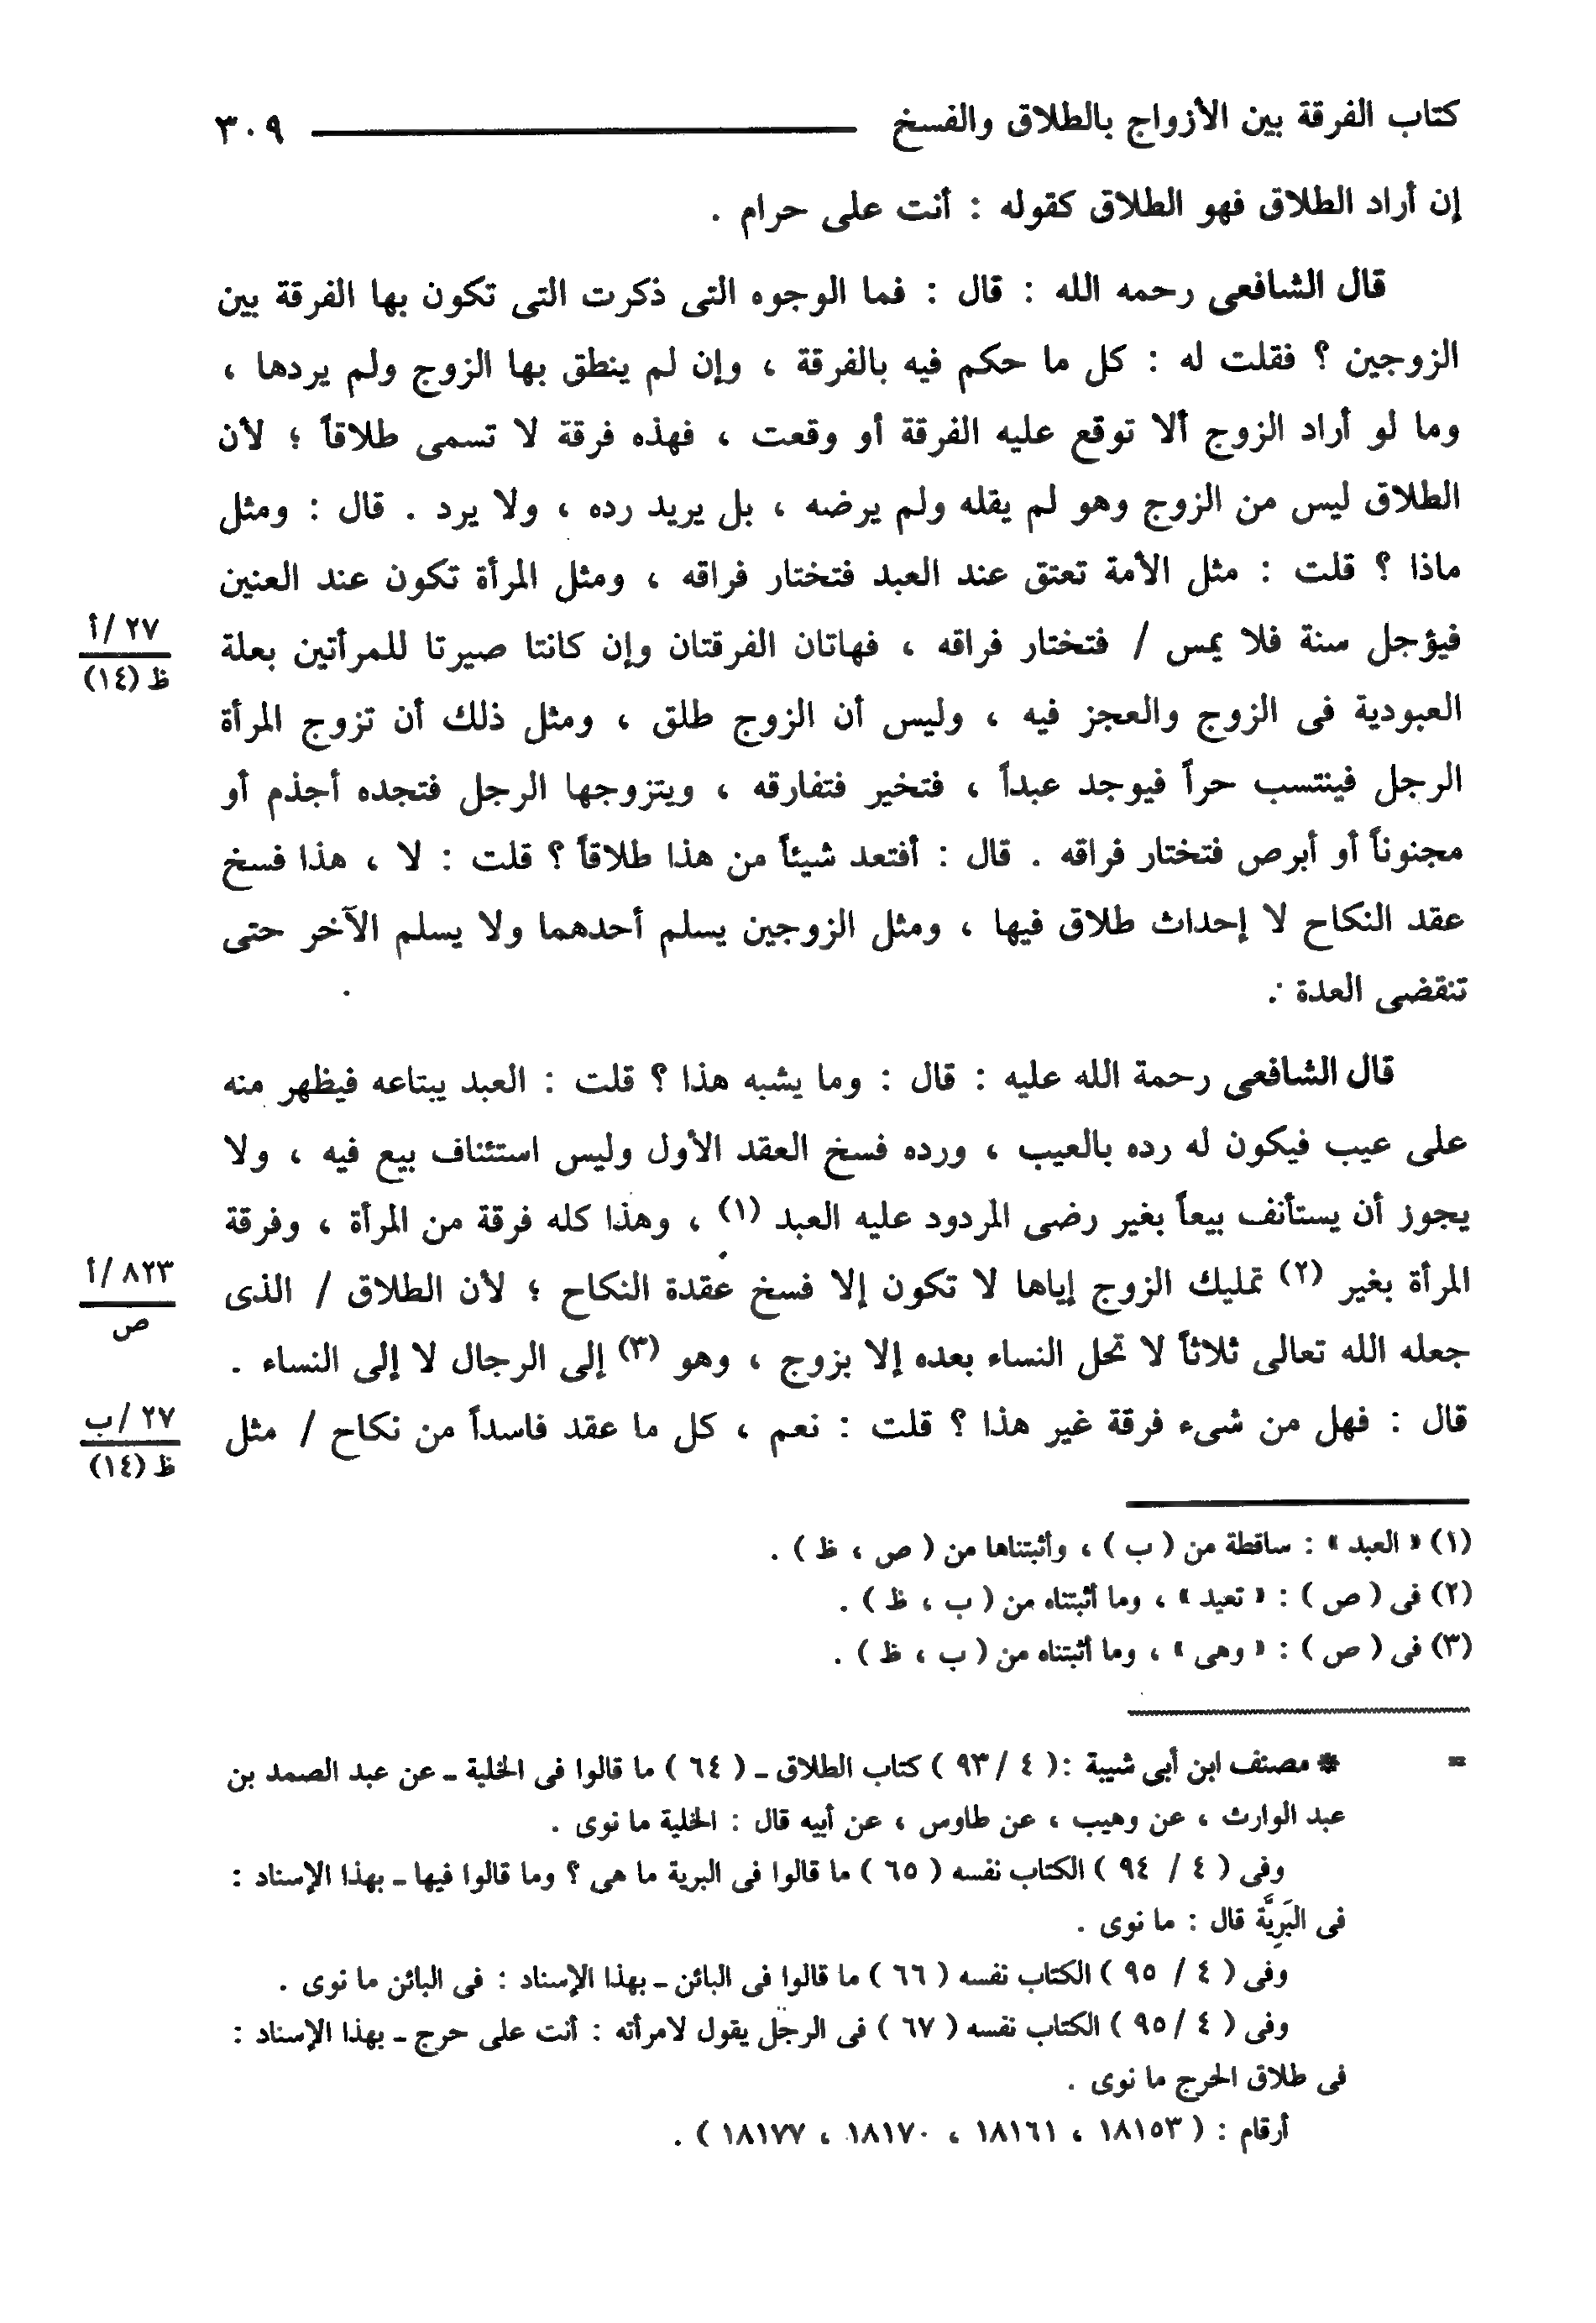 كتاب الفرقة بين الأزواج بالطلاق والفسخ ــــــــــ ٣٠٩
إن أراد الطلاق فهو الطلاق كقوله : أنت على حرام .
قال الشافعى رحمه الله : قال : فما الوجوه التى ذكرت التى تكون بها الفرقة بين
الزوجين ؟ فقلت له : كل ما حكم فيه بالفرقة ، وإن لم ينطق بها الزوج ولم يردها ،
وما لو أراد الزوج ألا توقع عليه الفرقة أو وقعت ، فهذه فرقة لا تسمى طلاقاً ؛ لأن
الطلاق ليس من الزوج وهو لم يقله ولم يرضه ، بل يريد رده ، ولا يرد . قال : ومثل
ماذا ؟ قلت : مثل الأمة تعتق عند العبد فتختار فراقه ، ومثل المرأة تكون عند العنين
فيؤجل سنة فلا يمس / فتختار فراقه ، فهاتان الفرقتان وإن كانتا صيرتا للمرأتين بعلة
٢٧ /أ
ظ (١٤)
العبودية فى الزوج والعجز فيه ، وليس أن الزوج طلق ، ومثل ذلك أن تزوج المرأة
الرجل فينتسب حراً فيوجد عبداً ، فتخير فتفارقه ، ويتزوجها الرجل فتجده أجذم أو
مجنوناً أو أبرص فتختار فراقه . قال : أفتعد شيئاً من هذا طلاقاً ؟ قلت : لا ، هذا فسخ
عقد النكاح لا إحداث طلاق فيها ، ومثل الزوجين يسلم أحدهما ولا يسلم الآخر حتى
تنقضى العدة .
قال الشافعى رحمة الله عليه : قال : وما يشبه هذا ؟ قلت : العبد يبتاعه فيظهر منه
على عيب فيكون له رده بالعيب ، ورده فسخ العقد الأول وليس استئناف بيع فيه ، ولا
يجوز أن يستأنف بيعاً بغير رضى المردود عليه العبد (١) ، وهذا كله فرقة من المرأة ، وفرقة
المرأة بغير (٢) تمليك الزوج إياها لا تكون إلا فسخ عقدة النكاح ؛ لأن الطلاق / الذى
٨٢٣ /أ
ص
جعله الله تعالى ثلاثاً لا تحل النساء بعده إلا بزوج ، وهو (٣) إلى الرجال لا إلى النساء .
قال : فهل من شىء فرقة غير هذا ؟ قلت : نعم ، كل ما عقد فاسداً من نكاح / مثل
٢٧ /ب
ظ (١٤)
(١) « العبد » : ساقطة من ( ب ) ، وأثبتناها من ( ص ، ظ ) .
(٢) فى ( ص ) : « تعيد » ، وما أثبتناه من ( ب ، ظ ) .
(٣) فى ( ص ) : « وهى » ، وما أثبتناه من ( ب ، ظ ) .
= * مصنف ابن أبى شيبة :( ٤ /٩٣ ) كتاب الطلاق ـ ( ٦٤ ) ما قالوا فى الخلية ـ عن عبد الصمد بن
عبد الوارث ، عن وهيب ، عن طاوس ، عن أبيه قال : الخلية ما نوى .
وفى ( ٤ / ٩٤ ) الكتاب نفسه ( ٦٥ ) ما قالوا فى البرية ما هى ؟ وما قالوا فيها ـ بهذا الإسناد :
فى البَرِيَّة قال : ما نوى .
وفى ( ٤ / ٩٥ ) الكتاب نفسه ( ٦٦ ) ما قالوا فى البائن ـ بهذا الإسناد : فى البائن ما نوى .
وفى ( ٤ /٩٥ ) الكتاب نفسه ( ٦٧ ) فى الرجل يقول لامرأته : أنت على حرج ـ بهذا الإسناد :
فى طلاق الحرج ما نوى .
أرقام : ( ١٨١٥٣ ، ١٨١٦١ ، ١٨١٧٠ ، ١٨١٧٧ ) .